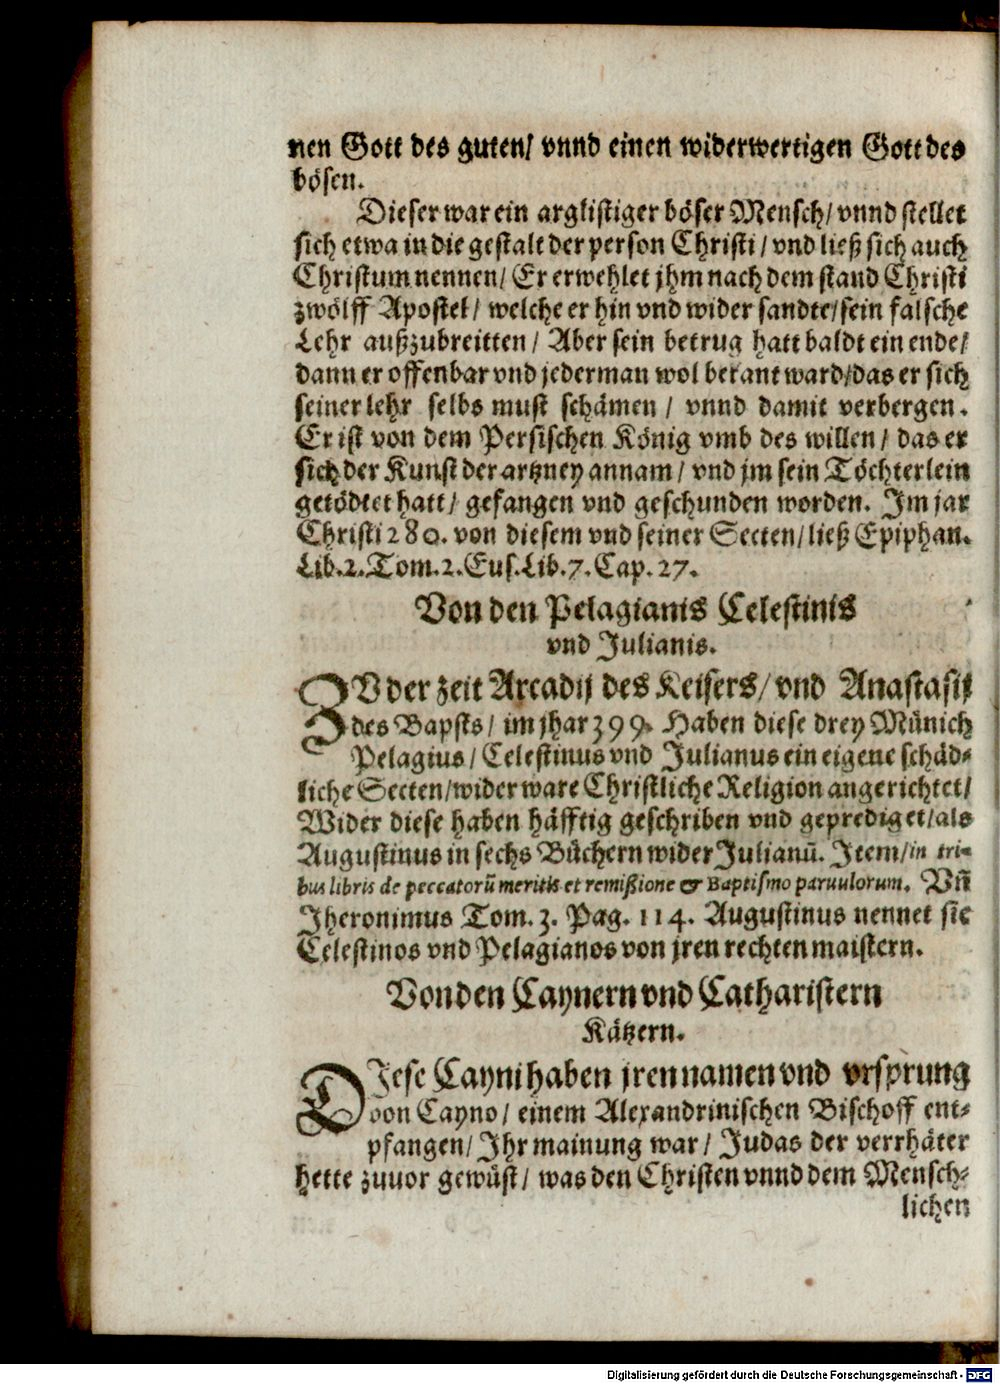 nen Gott des guten/ vnnd einen widerwertigen Gott des
bösen.
Dieser war ein arglistiger böser Mensch/ vnnd stellet
sich etwa in die gestalt der person Christi/ vnd ließ sich auch
Christum nennen/ Er erwehlet jhm nach dem stand Christi
zwölff Apostel/ welche er hin vnd wider sandte/ sein falsche
Lehr außzubreitten/ Aber sein betrug hatt baldt ein ende/
dann er offenbar vnd jederman wol bekant ward/ das er sich
seiner lehr selbs must schämen/ vnnd damit verbergen.
Er ist von dem Persischen König vmb des willen/ das er
sich der Kunst der artzney annam/ vnd jm sein Töchterlein
getödtet hatt/ gefangen vnd geschunden worden. Im jar
Christi 280. von diesem vnd seiner Secten/ ließ Epiphan.
Lib.2. Tom.2. Eus. Lib.7. Cap.27.
Von den Pelagianis Celestinis
vnd Julianis.
ZV der zeit Arcadij des Keisers/ vnd Anastasij
des Bapsts/ im jhar 399. Haben diese drey Münich
Pelagius/ Celestinus vnd Julianus ein eigene schäd-
liche Secten/ wider ware Christliche Religion angerichtet/
Wider diese haben häfftig geschriben vnd geprediget/ als
Augustinus in sechs Büchern wider Julianū. Item/ in tri-
bus libris de peccatorū meritis et remißione & Baptismo paruulorum. Vñ
Jheronimus Tom. 3. Pag. 114. Augustinus nennet sie
Celestinos vnd Pelagianos von jren rechten maistern.
Von den Caynern vnd Catharistern
Kätzern.
DIese Cayni haben jren namen vnd vrsprung
von Cayno/ einem Alexandrinischen Bischoff ent-
pfangen/ Ihr mainung war/ Judas der verrhäter
hette zuuor gewüst/ was den Christen vnnd dem Mensch-
lichen
Digitalisierung gefördert durch die Deutsche Forschungsgemeinschaft - DFG